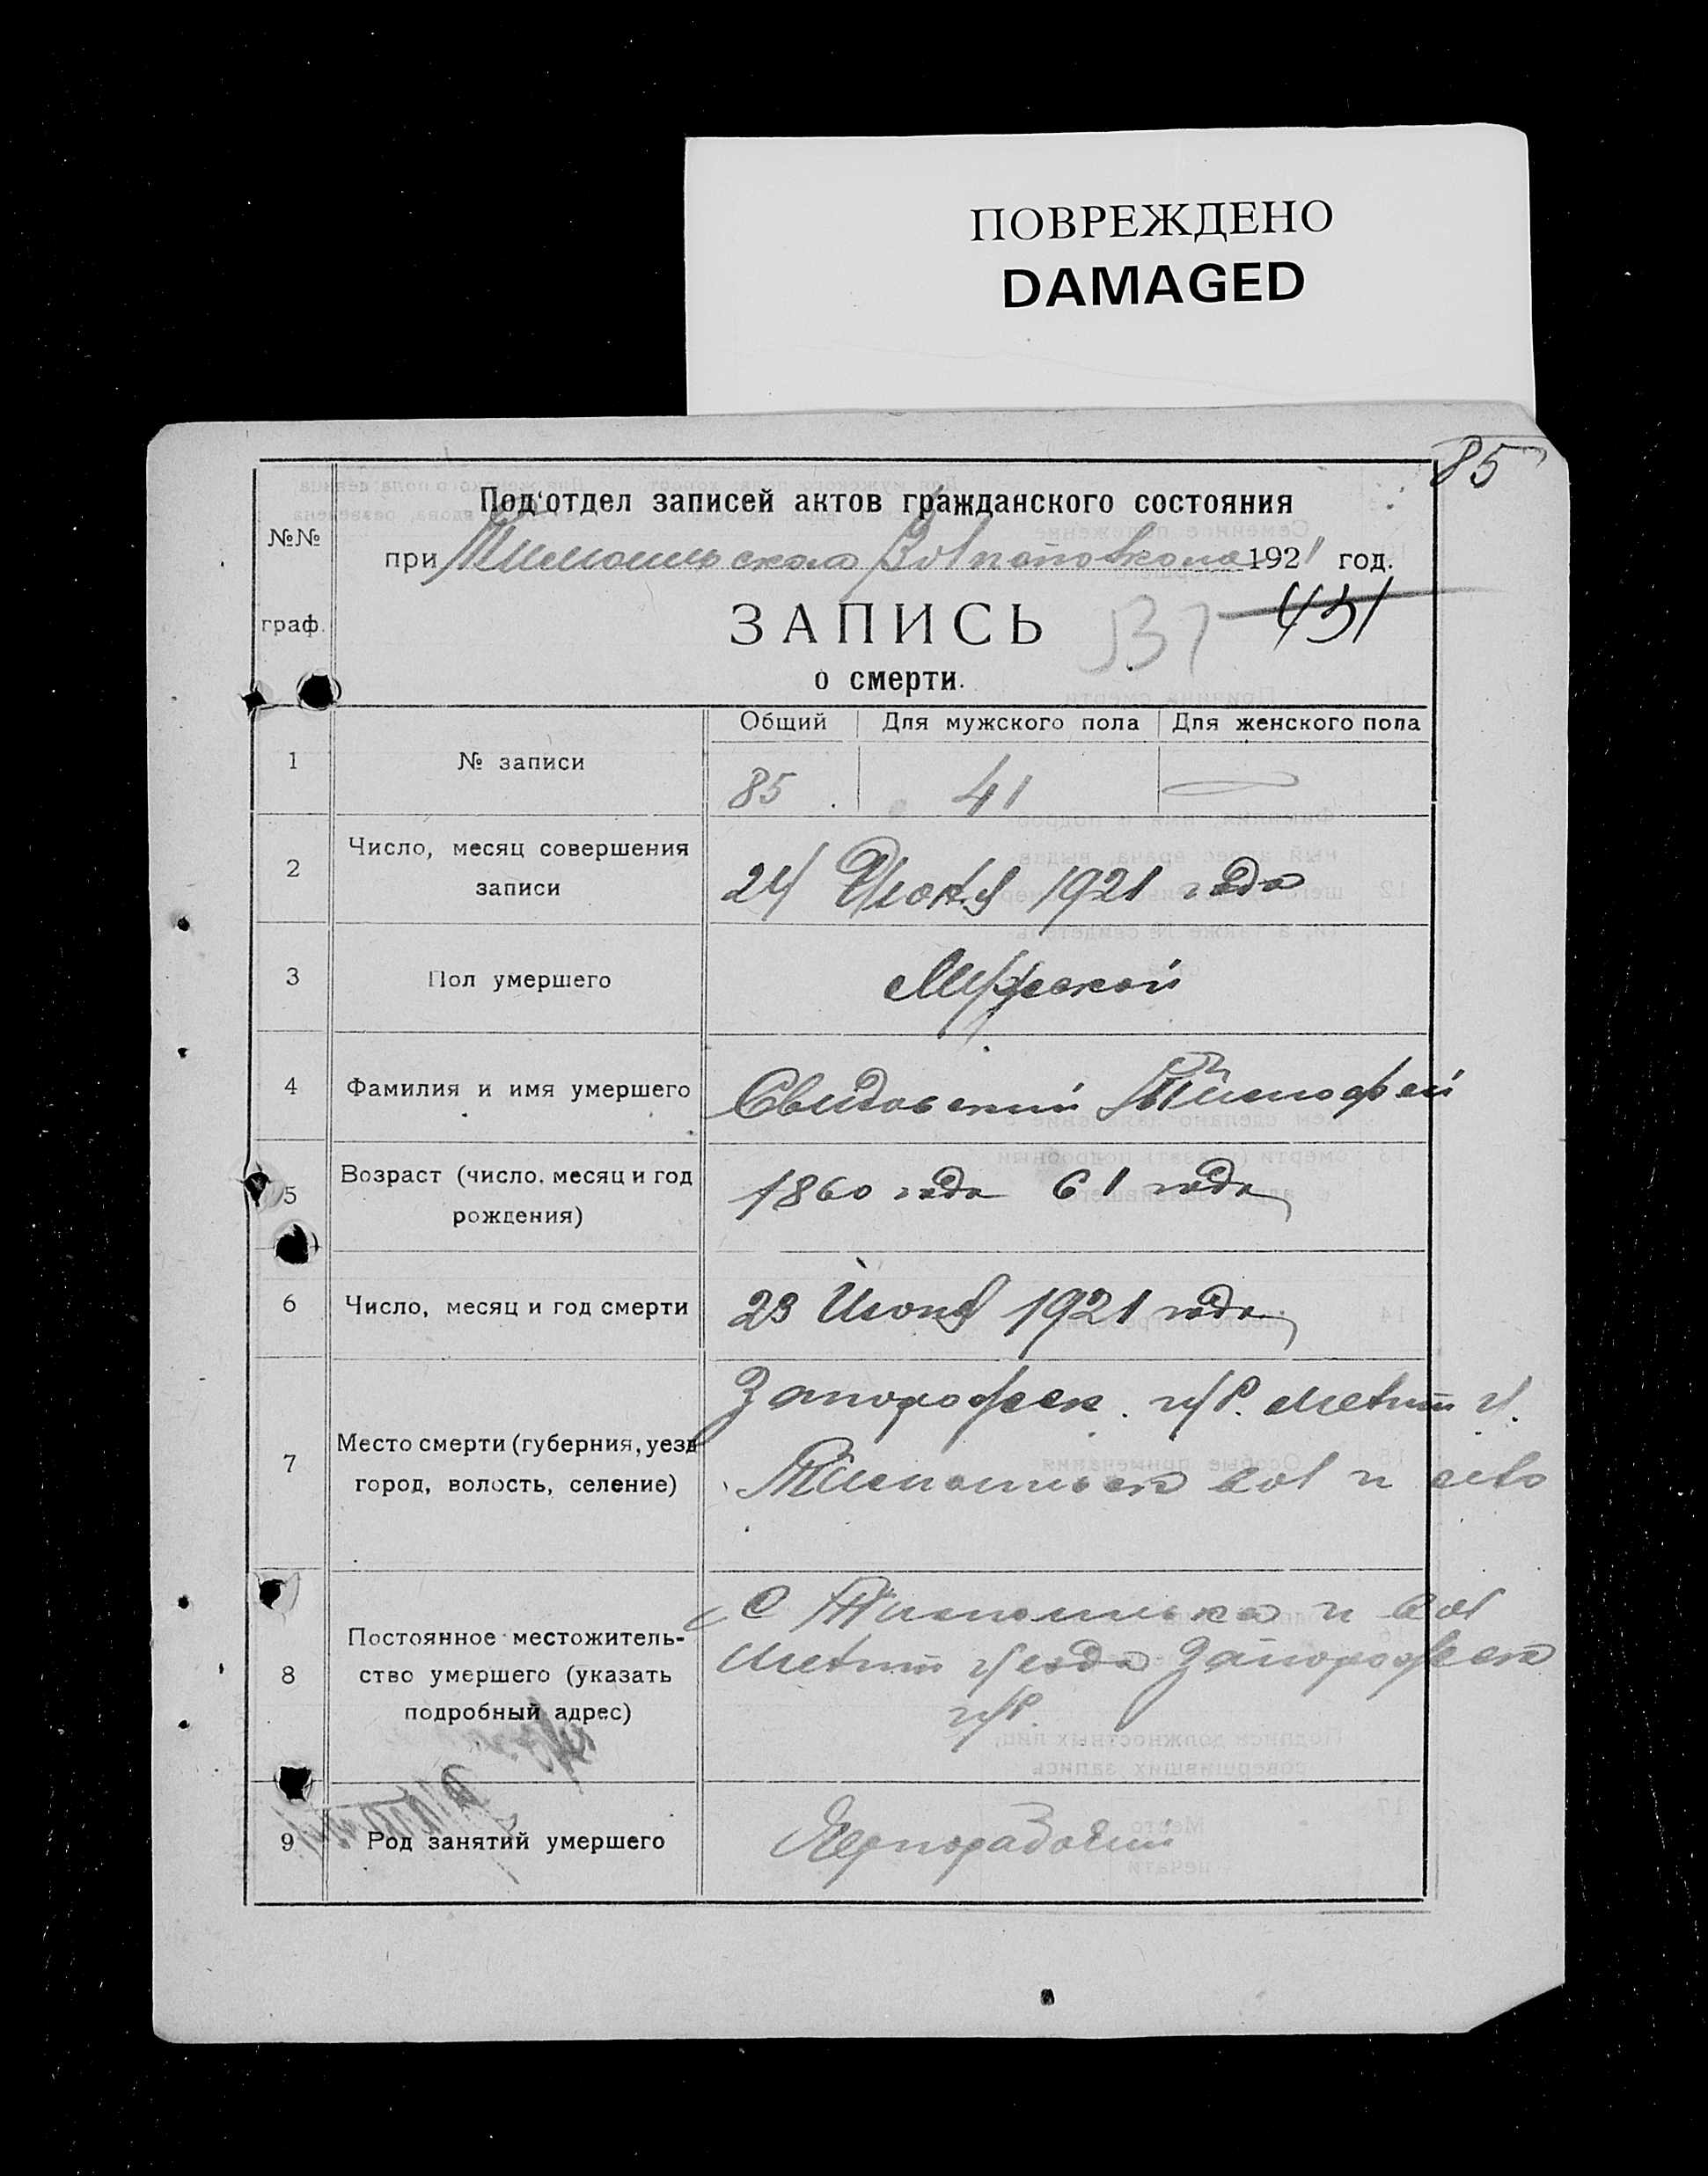 ПОВРЕЖДЕНО
DAMAGED
85
Под'отдел записей актов гражданского состояния
№№
при 1921 год.
граф.
ЗАПИСЬ
431
о смерти.
Общий Для мужского пола Для женского пола
1 № записи 85 41
2 Число, месяц совершения
записи
24 Июня 1921 года
3 Пол умершего Мужской
4 Фамилия и имя умершего Свидовский Тимофей
5 Возраст (число, месяц и год
рождения)
1860 года 61 года
6 Число, месяц и год смерти 23 Июня 1921 года
7 Место смерти (губерния, уезд
город, волость, селение)
Запорожск. г/р. Мелит у.
Тимошовск вол и село
8 Постоянное местожитель-
ство умершего (указать
подробный адрес)
С Тимошовка и вол
Мелит уезда Запорожск
г/р.
9 Род занятий умершего Чернорабочий